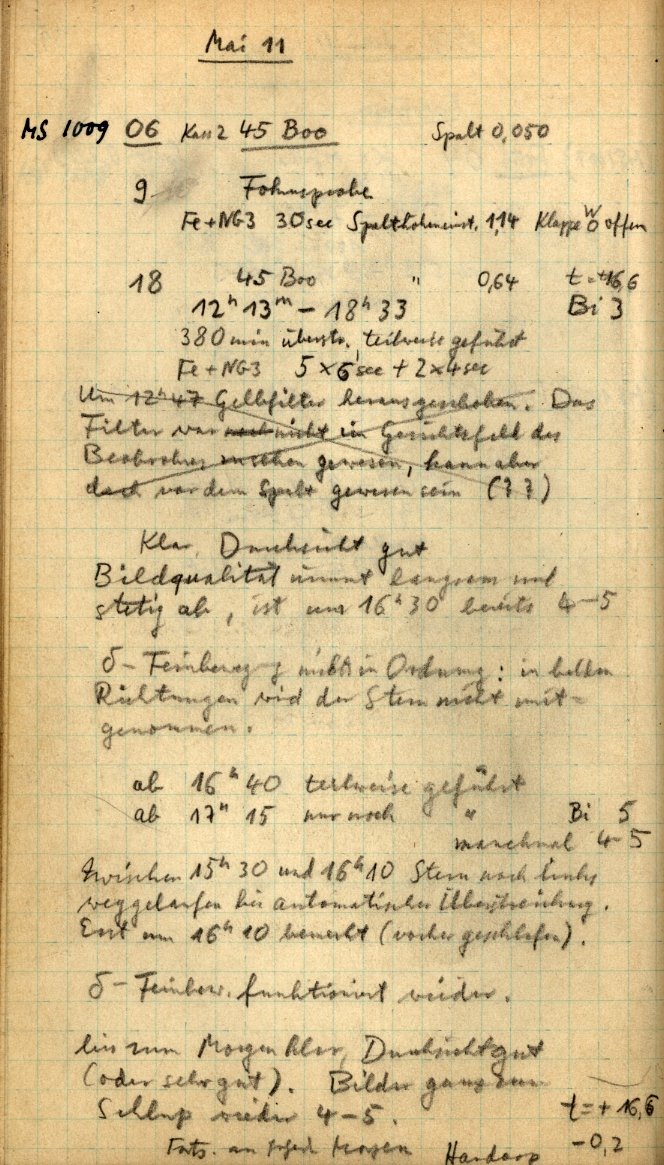 Mai 11
MS 1009 06 Kass 2 45 Boo Spalt 0,050
9 Fokusprobe
Fe+NG3 30sec Spalthöheneinst. 1,14 Klappe W O offen
18 45 Boo " 0,64 t=+16,6
12h 13m – 18h 33 Bi 3
380 min überstr., teilweise geführt
Fe+NG3 5×6sec + 2×4sec
Um 12h 47 Gelbfilter herausgeschoben. Das
Filter war noch nicht im Gesichtsfeld des
Beobrohres gewesen, kann aber
doch vor dem Spalt gewesen sein (??)
Klar, Durchsicht gut
Bildqualität nimmt langsam und
stetig ab, ist um 16h 30 bereits 4–5
δ-Feinbewegg nicht in Ordnung: in beiden
Richtungen wird der Stern nicht mit-
genommen.
ab 16h 40 teilweise geführt
ab 17h 15 nur noch " Bi 5
manchmal 4–5
Zwischen 15h 30 und 16h 10 Stern nach links
weggelaufen bei automatischer Überstreichung.
Erst um 16h 10 bemerkt (vorher geschlafen).
δ-Feinbew. funktioniert wieder.
bis zum Morgen klar, Durchsicht gut
(oder sehr gut). Bilder ganz zum
Schluß wieder 4–5. t=+16,6
Morgen Hardorp -0,2